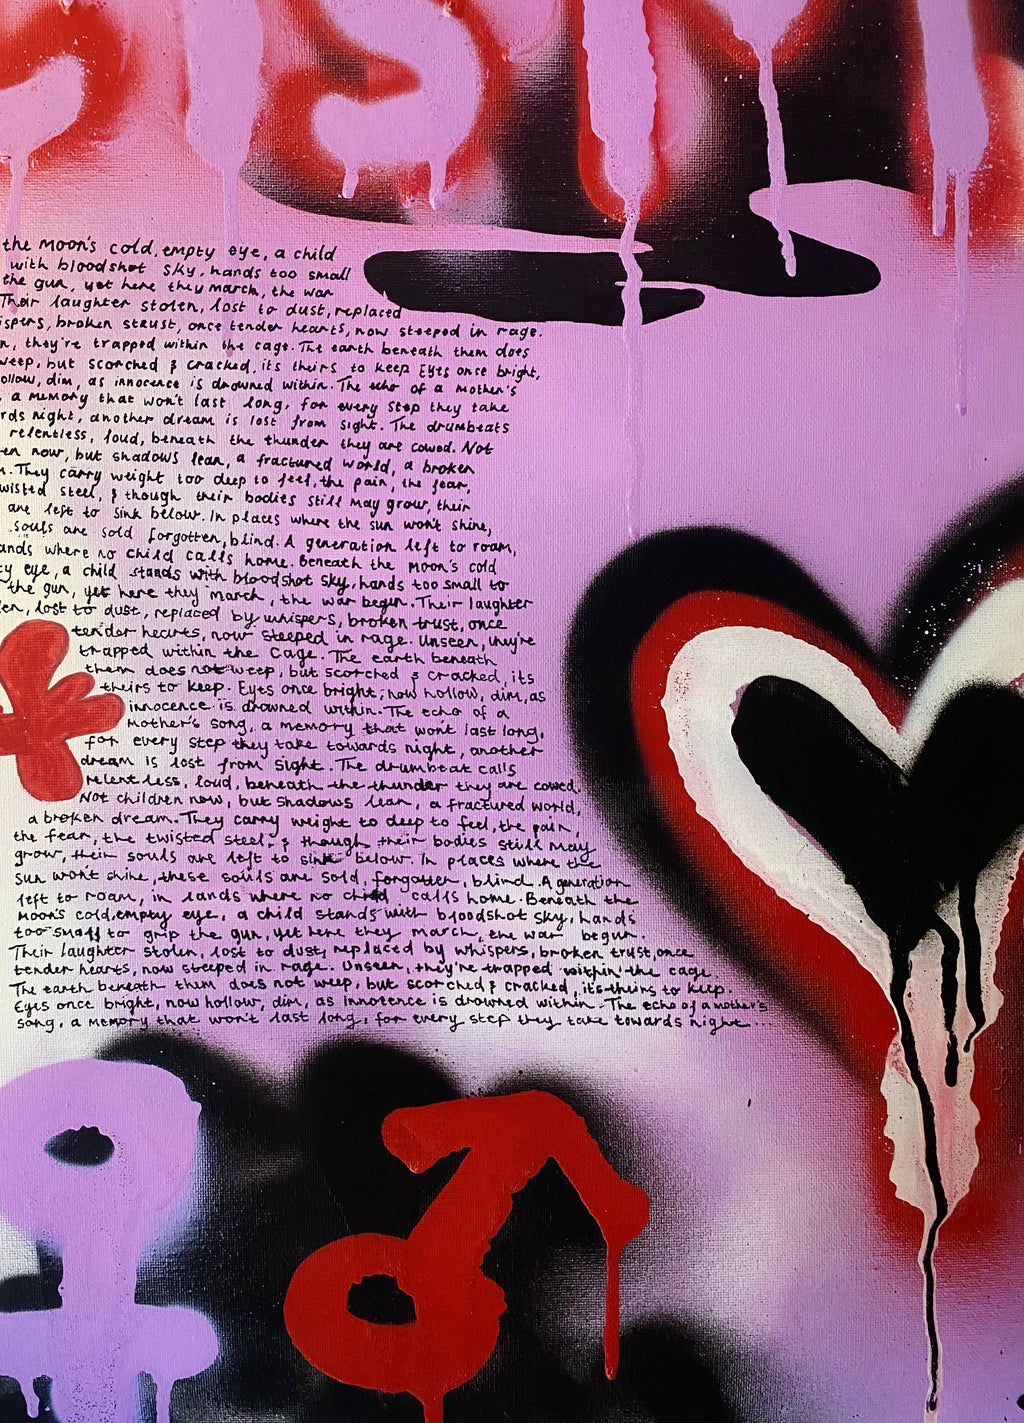 the Moon's cold, empty eye, a child
with bloodshot sky, hands too small
the gun, yet here they march, the war
Their laughter stolen, lost to dust, replaced
ispers, broken strust, once tender hearts, now steeped in rage.
n, they're trapped within the cage. The earth beneath them does
weep, but scorched & cracked, its theirs to keep Eyes once bright,
ollow, dim, as innocence is drowned within. The echo of a mother's
, a memory that won't last long, for every step they take
rds night, another dream is lost from sight. The drumbeats
relentless, loud, beneath the thunder they are cowed. Not
en now, but shadows lean, a fractured world, a broken
m. They carry weight too deep to feel, the pain, the fear,
wisted steel, & though their bodies still may grow, their
are left to sink below. In places where the sun won't shine,
souls are sold forgotten, blind. A generation left to roam,
ands where no child calls home. Beneath the moon's cold
ty eye, a child stands with bloodshot sky, hands too small to
the gun, yet here they march, the war begun. Their laughter
len, lost to dust, replaced by whispers, broken trust, once
tender hearts, now steeped in rage. Unseen, they're
trapped within the cage. The earth beneath
them does not weep, but scorched & cracked, its
theirs to keep. Eyes once bright, now hollow, dim, as
innocence is drowned within. The echo of a
mother's song, a memory that won't last long,
for every step they take towards night, another
dream is lost from sight. The drumbeat calls
relentless, loud, beneath the thunder they are cowed.
Not children now, but shadows lean, a fractured world,
a broken dream. They carry weight to deep to feel, the pain,
the fear, the twisted steel, & though their bodies still may
grow, their souls are left to sink below. In places where the
sun won't shine, these souls are sold, forgotten, blind. A generation
left to roam, in lands where no child calls home. Beneath the
moon's cold, empty eye, a child stands with bloodshot sky, hands
too small to grip the gun, yet here they march, the war begun.
Their laughter stolen, lost to dust, replaced by whispers, broken trust, once
tender hearts, now steeped in rage. Unseen, they're trapped within the cage.
The earth beneath them does not weep, but scorched & cracked, its theirs to keep.
Eyes once bright, now hollow, dim, as innocence is drowned within. The echo of a mother's
song, a memory that won't last long, for every step they take towards night...